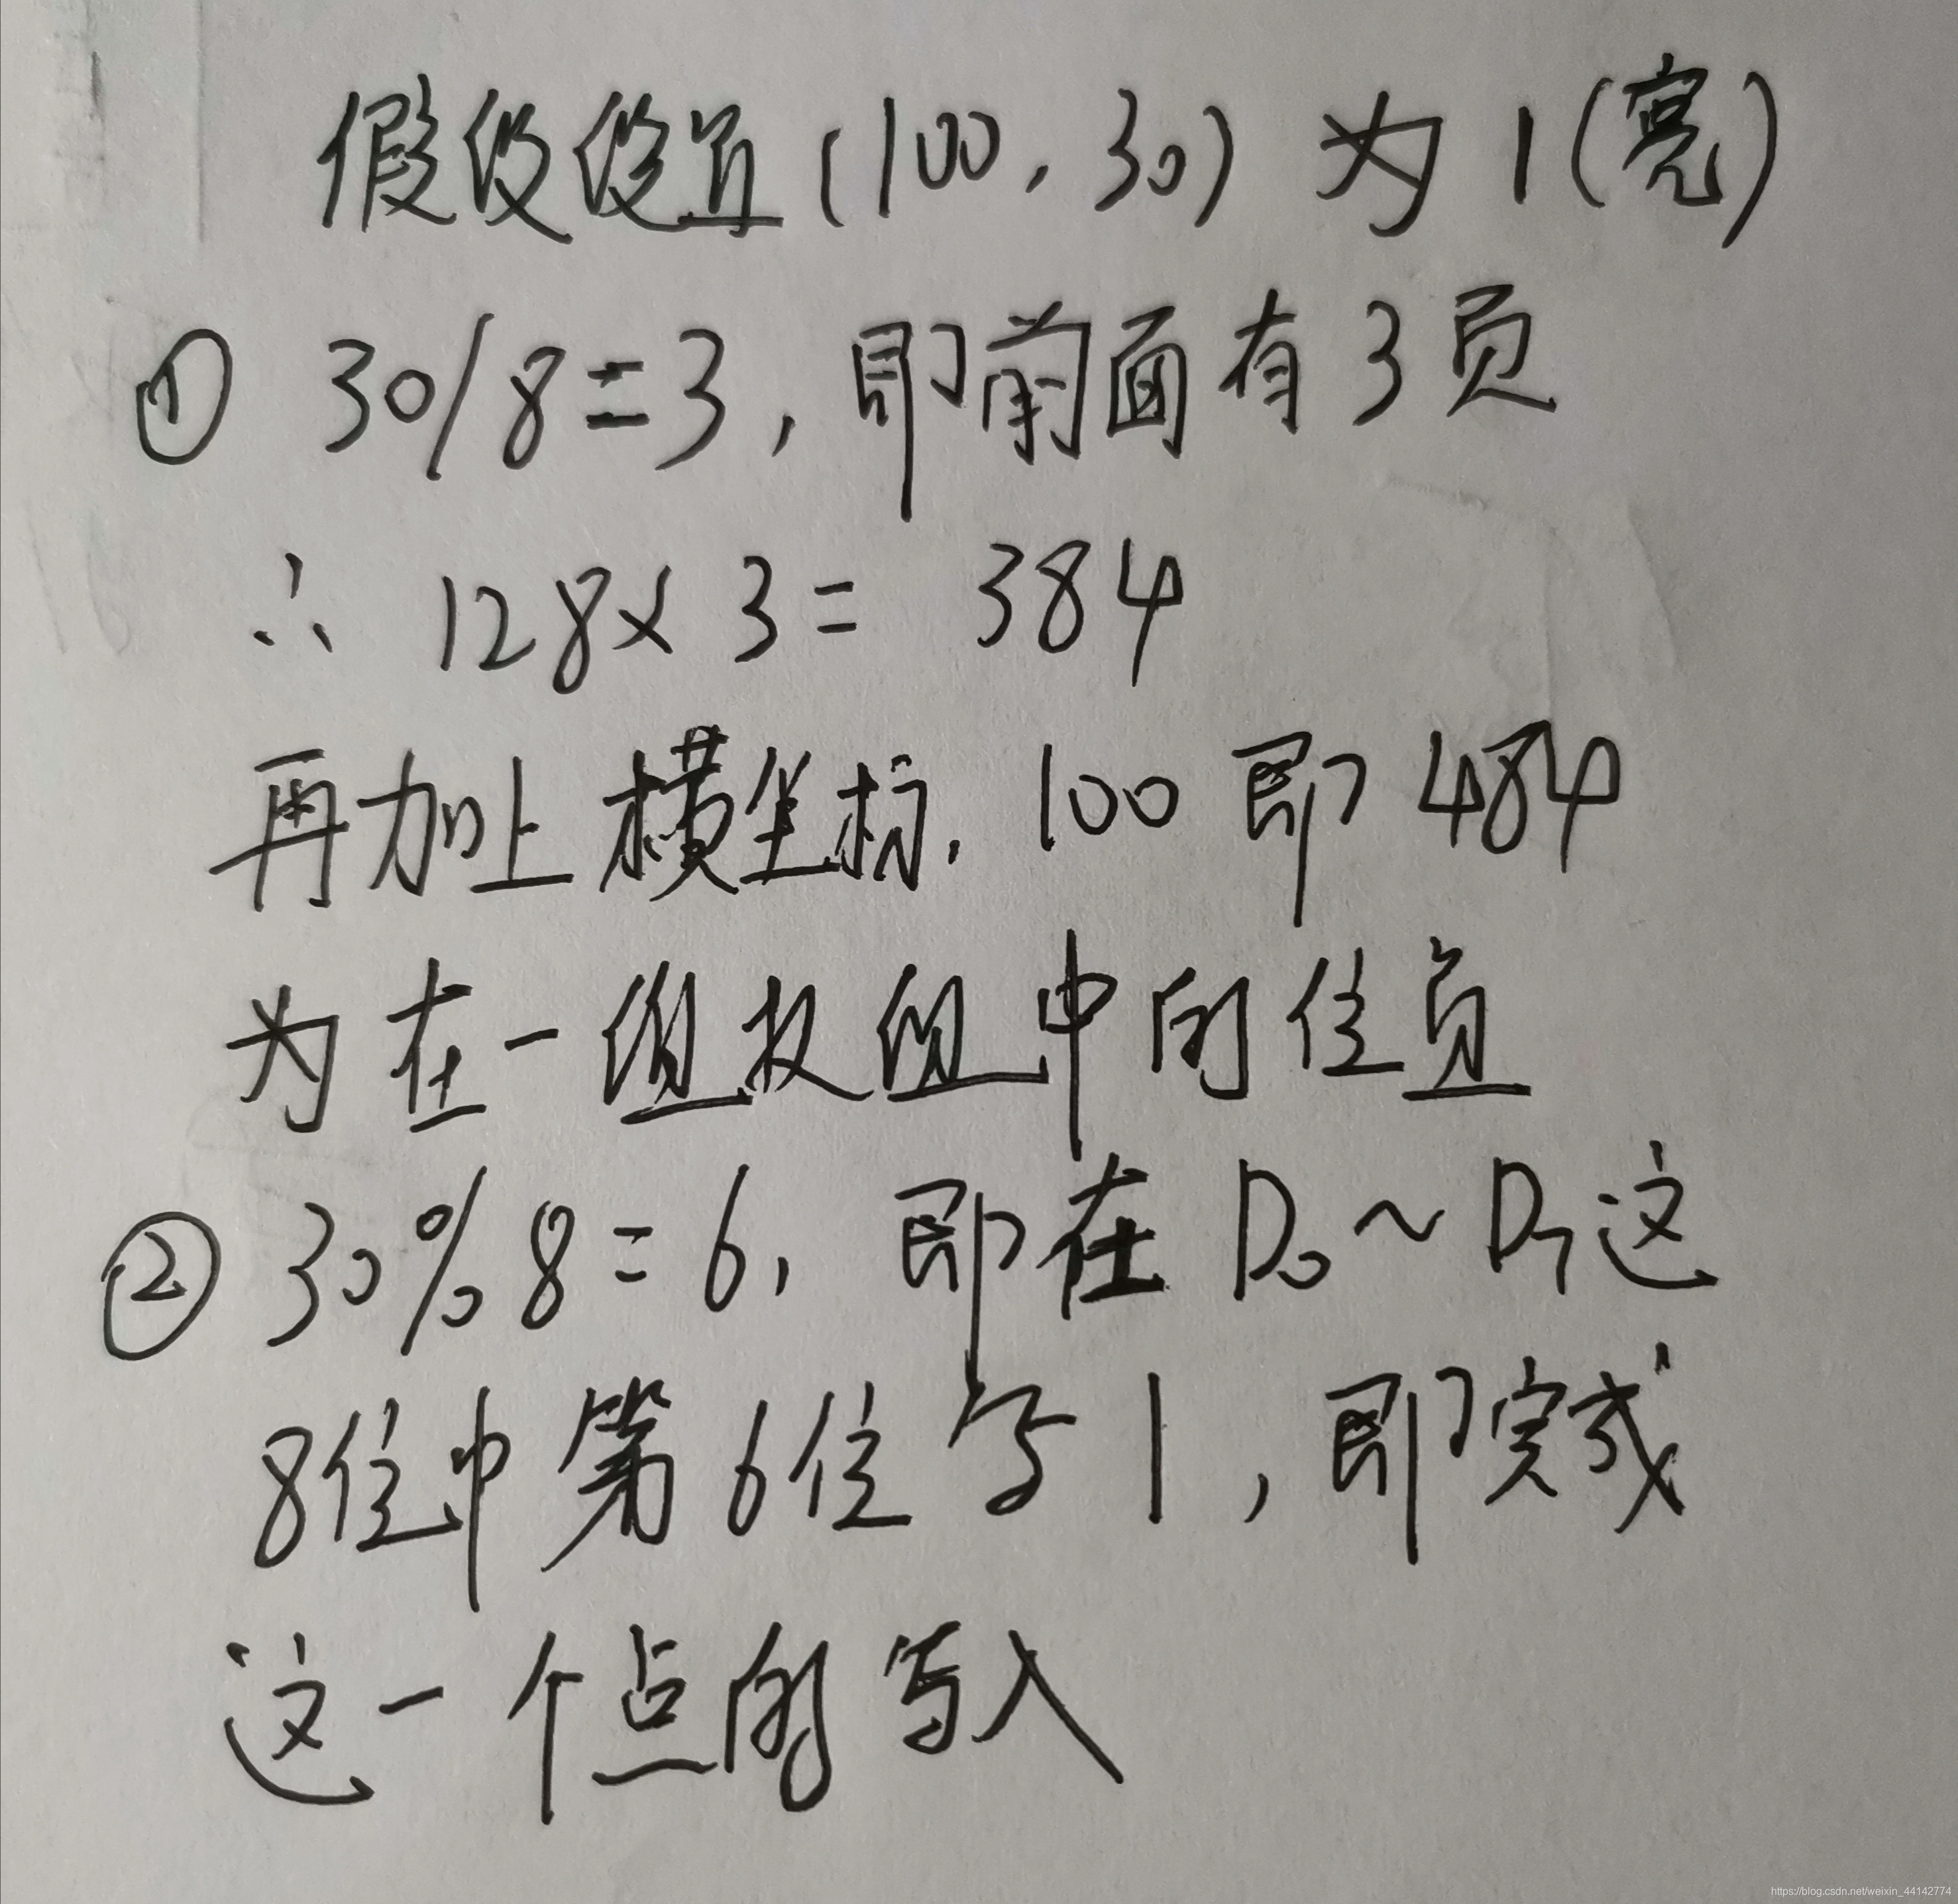 假设设置(100,30) 为 1(亮)
① 30/8=3,即前面有3页
∴ 128×3= 384
再加上横坐标,100 即 484
为在一组数组中的位置
② 30%8=6,即在 D₀~D₇这
8位中第6位写1,即完成
这一个点的写入
https://blog.csdn.net/weixin_44142774